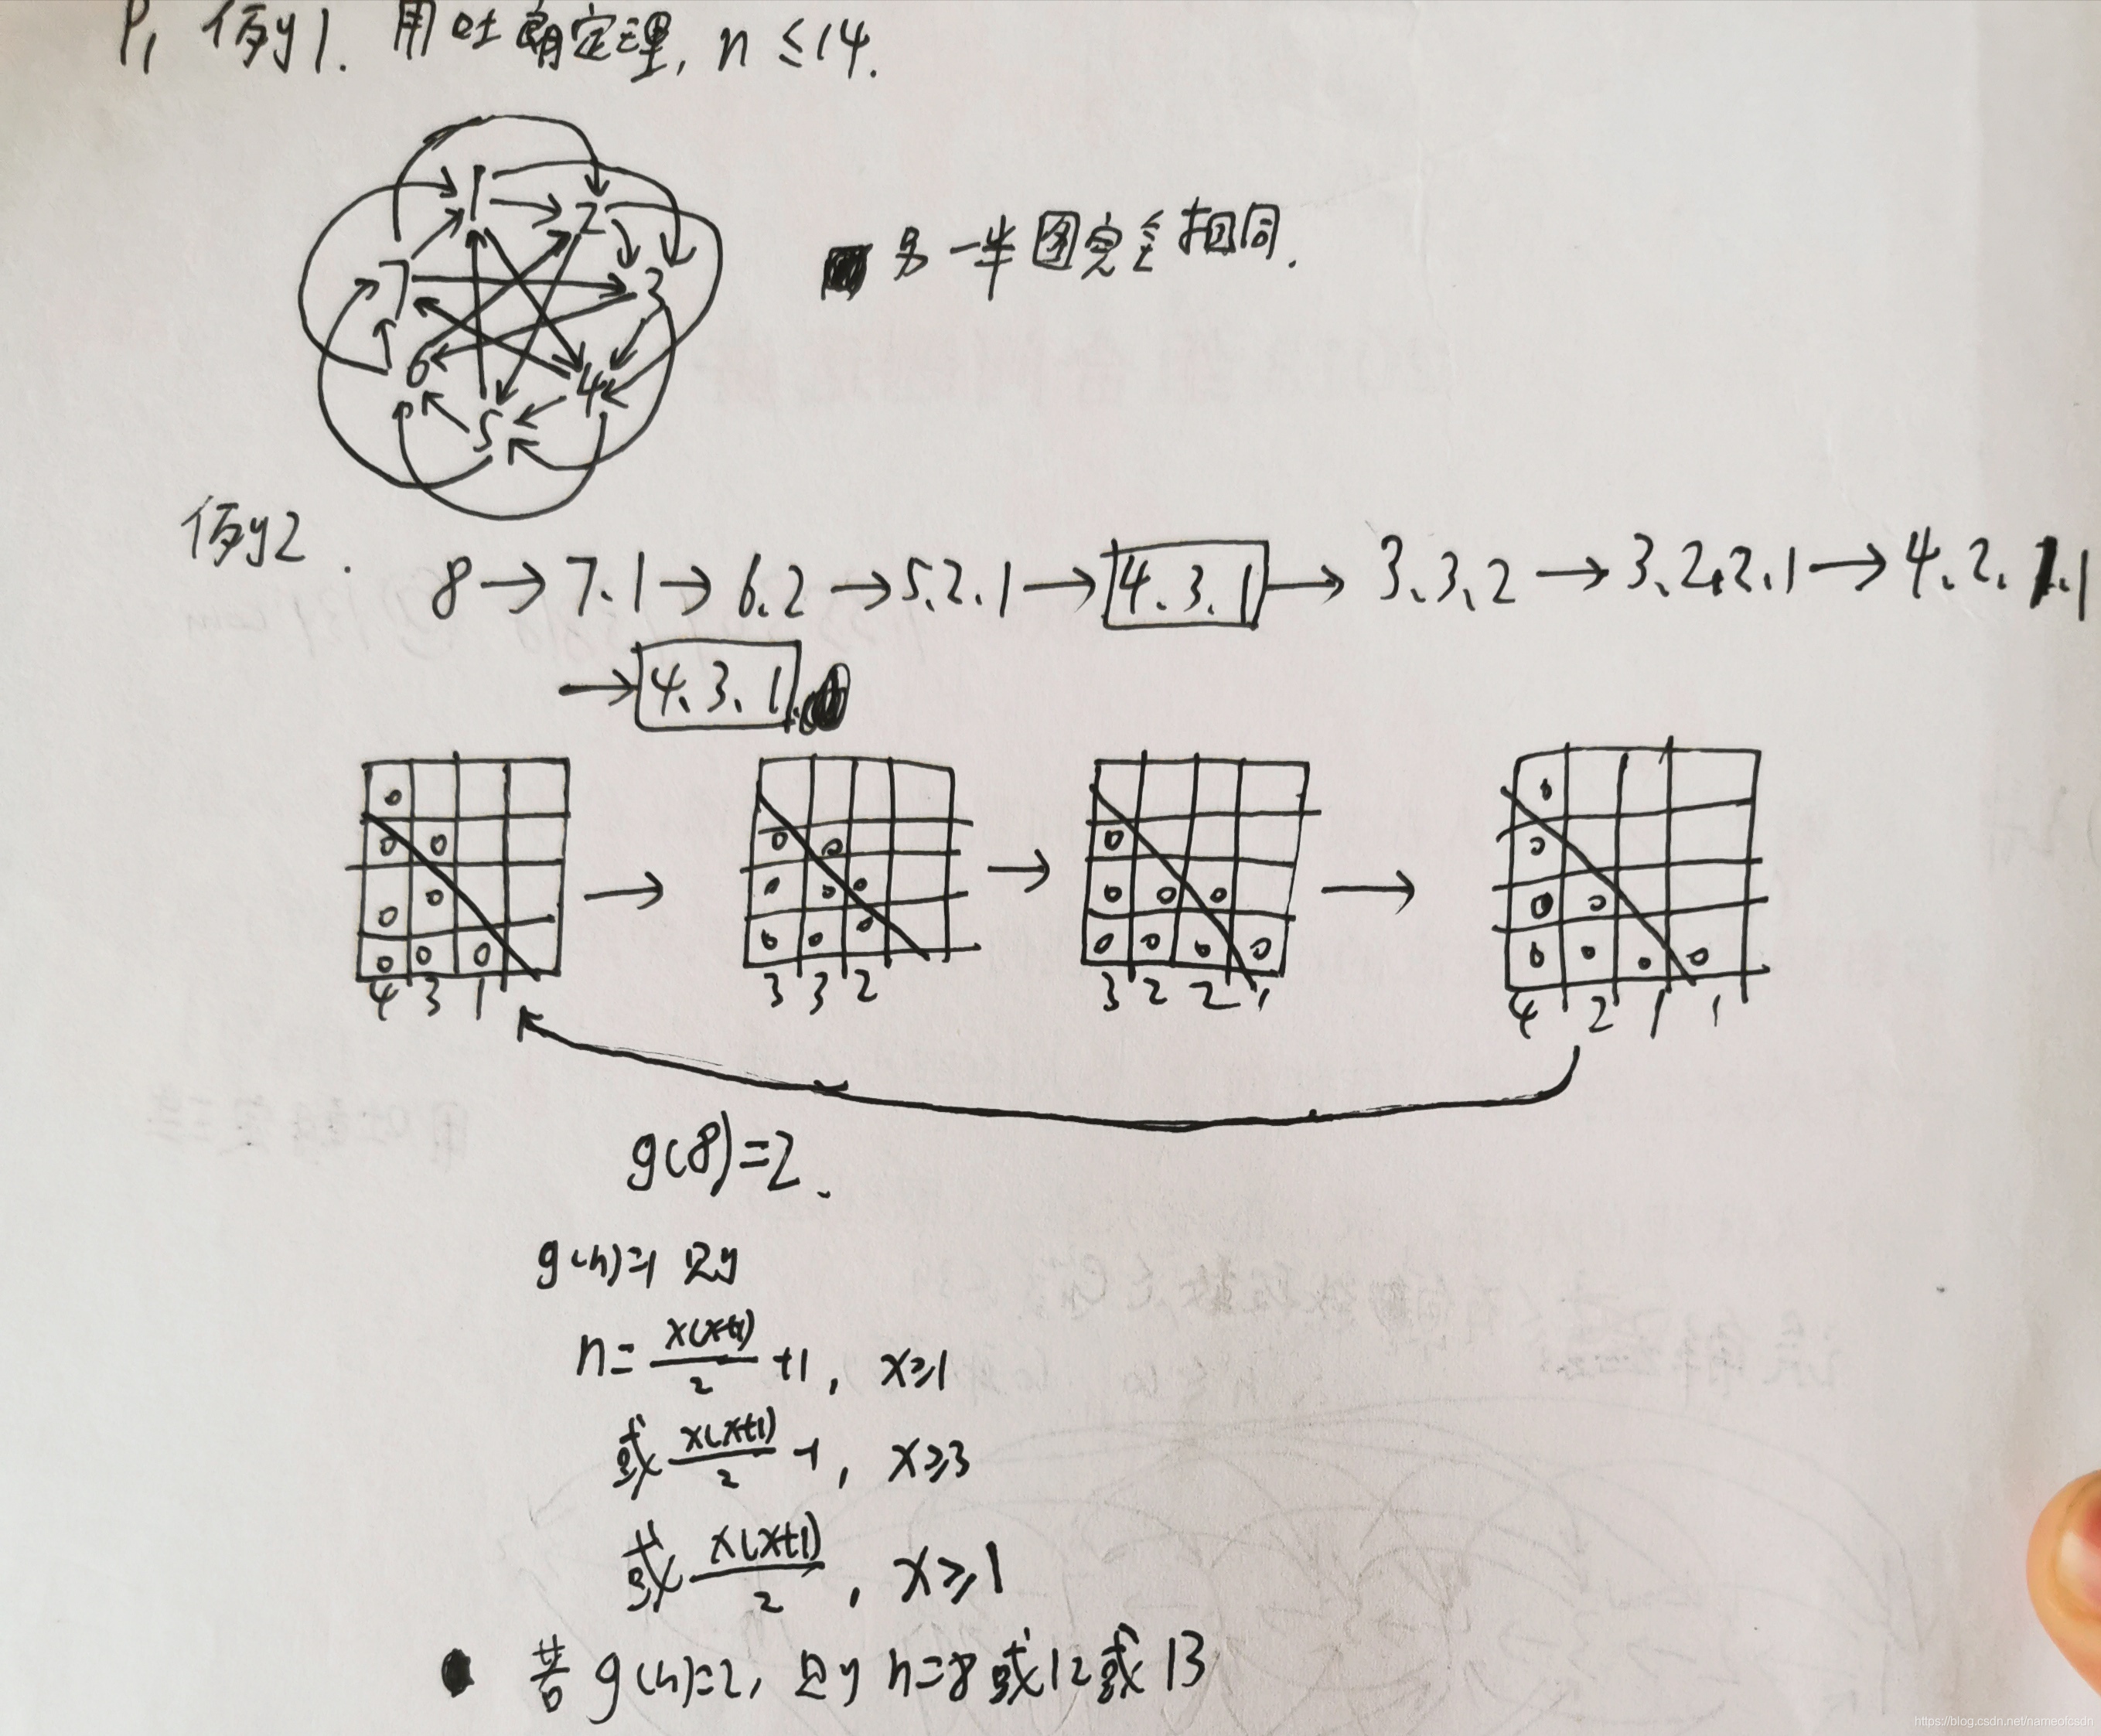 P1 例1. 用吐朗定理, n ≤ 14.
1 2 3 4 5 6 7
另一半图完全相同.
例2.
8 → 7.1 → 6.2 → 5.2.1 → 4.3.1 → 3.3.2 → 3.2.2.1 → 4.2.1.1
→ 4.3.1
4 3 1 → 3 3 2 → 3 2 2 1 → 4 2 1 1
g(8)=2.
g(n)=1 则
n = x(x+1)/2 +1, x≥1
或 x(x+1)/2 -1, x≥3
或 x(x+1)/2, x≥1
若 g(n)=2, 则 n=8或12或13
https://blog.csdn.net/nameofcsdn